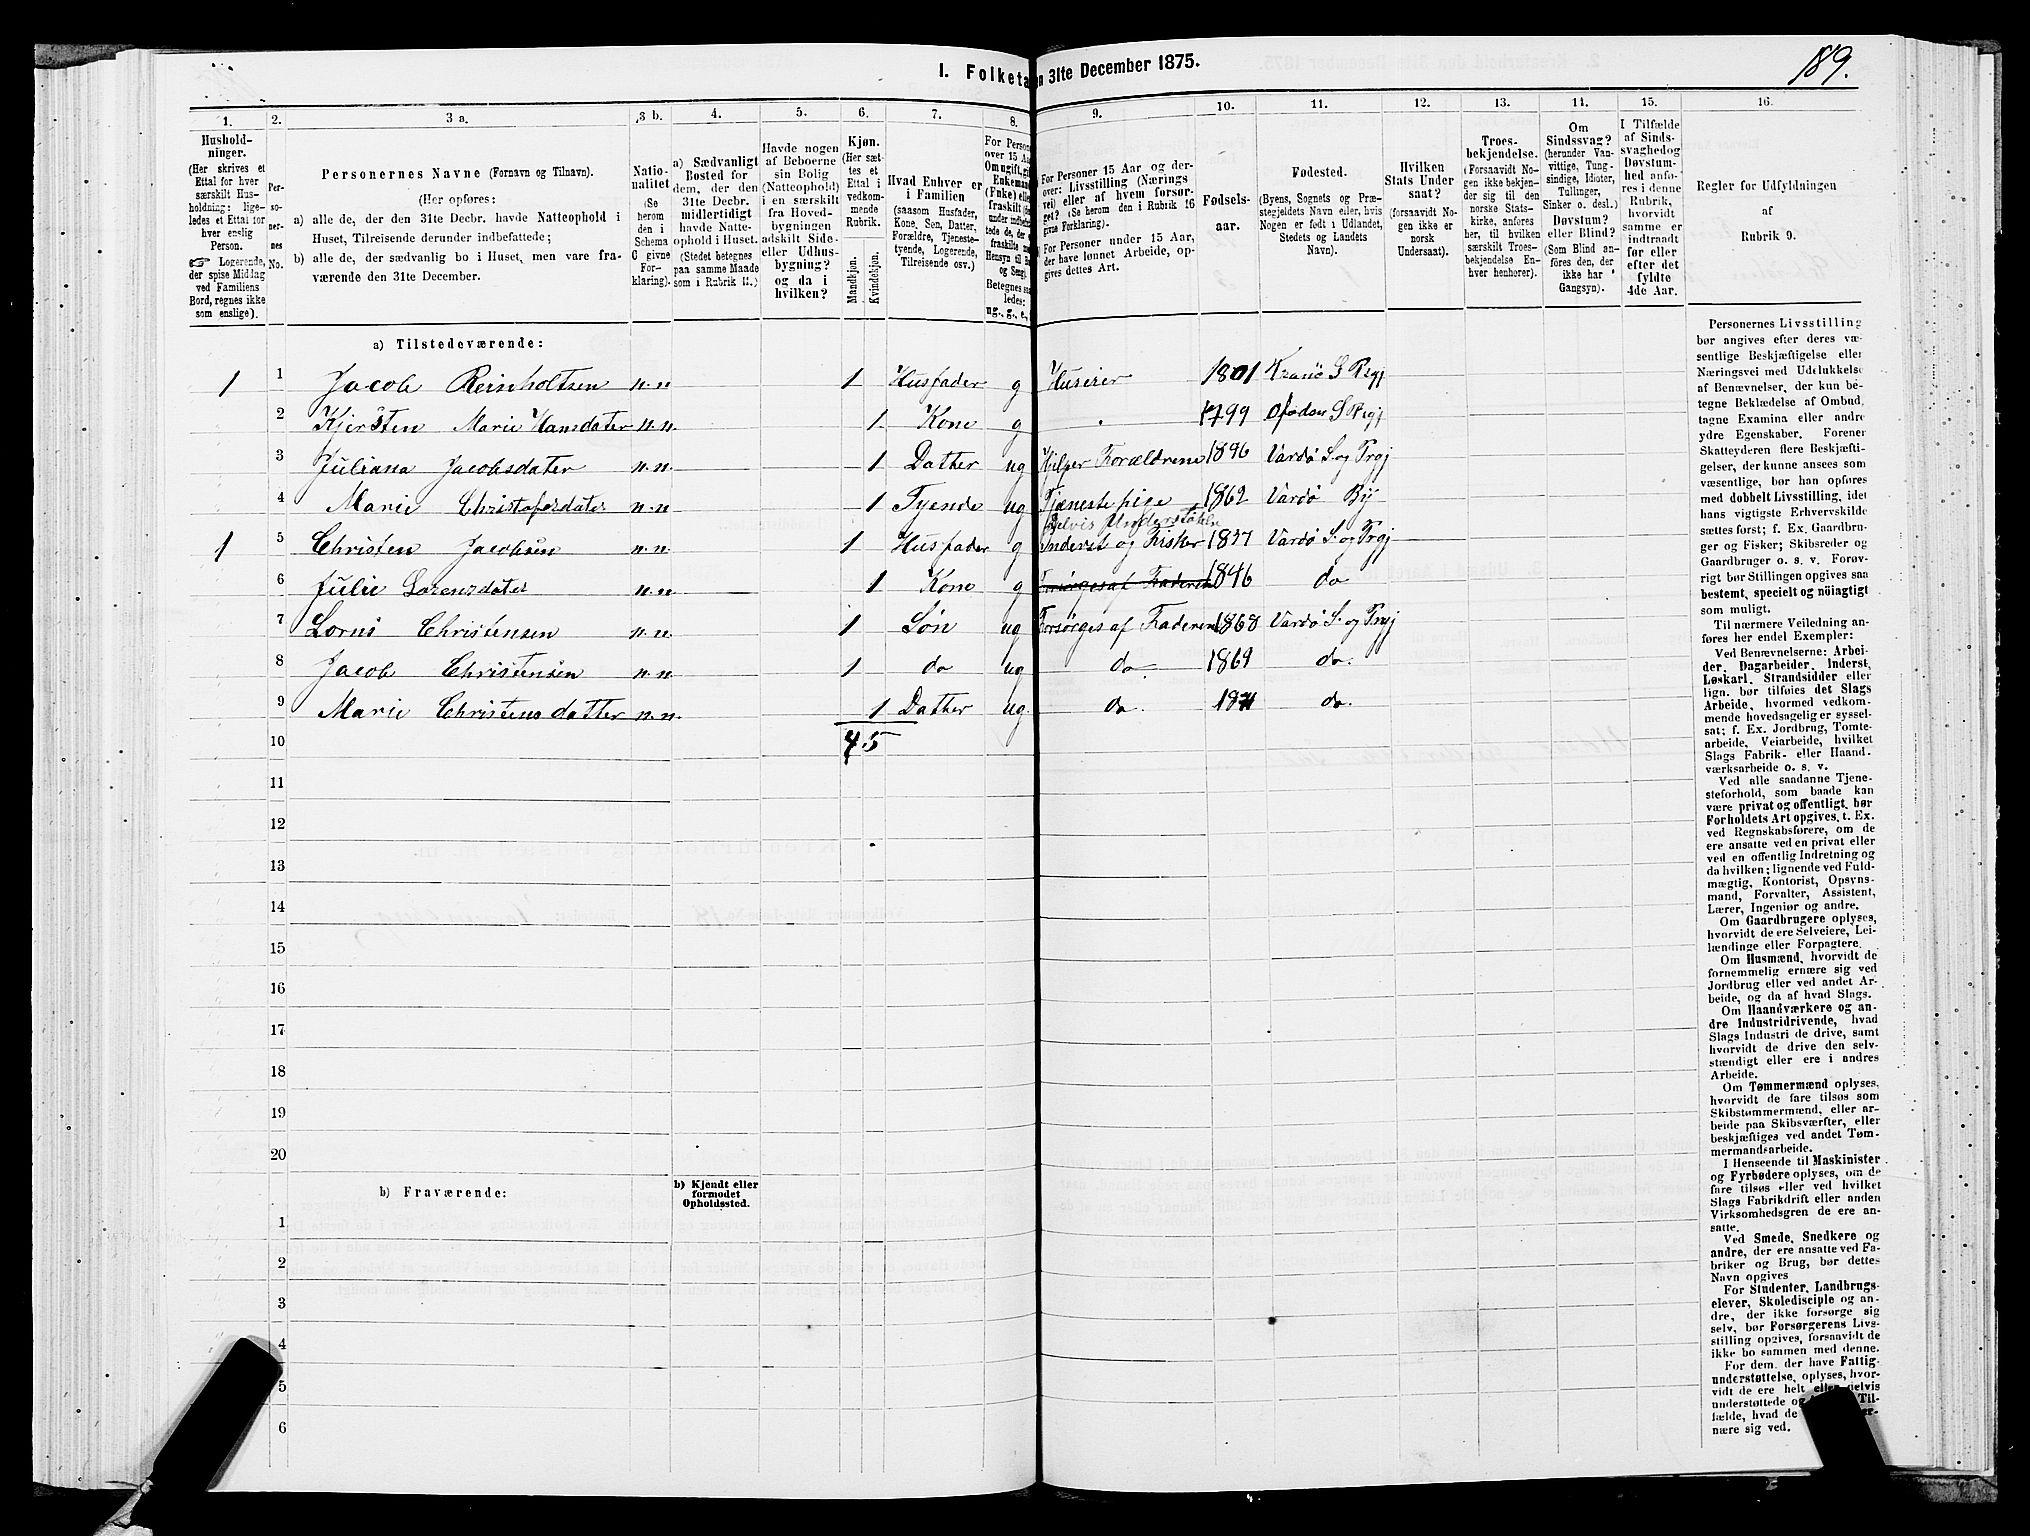 189.
I. Folketa n 31te December 1875.
1. 2. 3 a. 3 b. 4. 5. 6. 7. 8. 9. 10. 11. 12. 13. 14. 15. 16.
Hushold-
ninger.
(Her skrives et
Ettal for hver
særskilt Hus-
holdning: lige-
ledes et Ettal for
hver enslig
Person.
☞ Logerende,
der spise Middag
ved Familiens
Bord, regnes ikke
som enslige).
Per-
so-
ner-
nes
No.
Personernes Navne (Fornavn og Tilnavn).
(Her opføres:
a) alle de, der den 31te Decbr. havde Natteophold i
Huset, Tilreisende derunder indbefattede;
b) alle de, der sædvanlig bo i Huset, men vare fra-
værende den 31te December.
Natio-
nalitet
(Se
herom
den i
Schema
C givne
For-
klaring).
a) Sædvanligt
Bosted for
dem, der den
31te Decbr.
midlertidigt
havde Natte-
ophold i Huset.
(Stedet betegnes
paa samme Maade
som i Rubrik 11.)
Havde nogen
af Beboerne
sin Bolig
(Natteophold)
i en særskilt
fra Hoved-
bygningen
adskilt Side-
eller Udhus-
bygning?
og da i
hvilken?
Kjøn.
(Her sæt-
tes et
Ettal i
vedkom-
mende
Rubrik.
Mandkjøn.
Kvindekjøn.
Hvad Enhver er
i Familien
(saasom Husfader,
Kone, Søn, Datter,
Forældre, Tjeneste-
tyende, Logerende,
Tilreisende osv.)
For Person
over 15 Aa
Om ugift, gi
Enkeman
(Enke) elle
fraskilt
Betegnes saa
ledes:
ug., g., e.,
For Personer 15 Aar og der-
over: Livsstilling (Nærings
vei) eller af hvem forsør-
get? (Se herom den i Rubrik 16
givne Forklaring).
For Personer under 15 Aar,
der have lønnet Arbeide, op-
gives dettes Art.
Fødsels-
aar.
Fødested.
(Byens, Sognets og Præ-
stegjeldets Navn eller, hvis
Nogen er født i Udlandet,
Stedets og Landets
Navn).
Hvilken
Stats Under
saat?
(forsaavidt No-
gen ikke er
norsk
Undersaat).
Troes-
bekjendelse.
(Forsaavidt No-
gen ikke bekjen-
der sig til den
norske Stats-
kirke, anføres
her, til hvilken
særskilt Troes-
bekjendelse En-
hver henhører).
Om
Sindssvag?
(herunder Van-
vittige, Tung-
sindige, Idioter,
Tullinger,
Sinker o. desl.)
Døvstum?
eller Blind?
(Som Blind an-
føres den, der
ikke har
Gangsyn).
I Tilfælde
af Sinds-
svaghed og
Døvstum-
hed anfø-
res i denne
Rubrik,
hvorvidt
samme er
indtraadt
før eller
efter det
fyldte
4de Aar.
Regler for Udfyldningen
af
Rubrik 9.
a) Tilstedeværende:
1 1 Jacob Reinholtsen n.n 1 Husfader g Huseier 1801 Kranö S Pregj
2 Kjersten Marie Hansdater n.n. 1 Kone g 1799 Ofoden S Pregj
3 Juliana Jacobsdater n.n. 1 Dather ug Hjelper Forældrene 1846 Vardö S. og Prgj
4 Marie Christofersdater n.n 1 Tyende ug Tjeneste pige 1862 Vardö By
Delvis Understøttelse
1 5 Christen Jacobsen n.n. 1 Husfader g Inderst og Fisker 1837 Vardö S. og Prgj
6 Julie Lorenzdater n.n. 1 Kone g Forsørges af Faderen 1846 do
7 Lorns Christensen n.n. 1 Søn ug Forsørges af Faderen 1868 Vardö S. og Prgj
8 Jacob Christensen n.n. 1 do ug do 1869 do.
9 Marie Christens datter n.n. 1 Dather ug do. 1871 do.
10 4.5
11
12
13
14
15
16
17
18
19
20
b) Fraværende:
b) Kjendt eller
formodet
Opholdssted.
1
2
3
4
5
6
Personernes Livsstilling
bør angives efter deres væ-
sentlige Beskjæftigelse eller
Næringsvei med Udelukkelse
af Benævnelser, der kun be-
tegne Beklædelse af Ombud,
tagne Examina eller andre
ydre Egenskaber. Forener
Skatteyderen flere Beskjæfti-
gelser, der kunne ansees som
væsentlige, bør han opføres
med dobbelt Livsstilling, idet
hans vigtigste Erhvervskilde
sættes først; f. Ex. Gaardbru-
ger og Fisker; Skibsreder og
Gaardbruger o. s. v. Forøv-
rigt bør Stillingen opgives saa
bestemt, specielt og nöiagtigt
som muligt.
Til nærmere Veiledning an-
føres her endel Exempler:
Ved Benævnelserne: Arbei-
der, Dagarbeider, Inderst,
Løskarl, Strandsidder eller
lign. bør tilføies det Slags
Arbeide, hvormed vedkom-
mende hovedsagelig er syssel-
sat; f. Ex. Jordbrug, Tomte-
arbeide, Veiarbeide, hvilket
Slags Fabrik- eller Haand-
værksarbeide o. s. v.
Ved alle saadanne Tjene-
steforhold, som baade kan
være privat og offentligt, bør
Forholdets Art opgives, t. Ex.
ved Regnskabsførere, om de
ere ansatte ved en privat eller
ved en offentlig Indretning og
da hvilken; lignende ved Fuld-
mægtig, Kontorist, Opsyns-
mand, Forvalter, Assistent,
Lærer, Ingeniør og andre.
Om Gaardbrugere oplyses,
hvorvidt de ere Selveiere, Lei-
lændinge eller Forpagtere.
Om Husmænd, hvorvidt de
fornemmelig ernære sig ved
Jordbrug eller ved andet Ar-
beide, og da af hvad Slags.
Om Haandværkere og an-
dre Industridrivende, hvad
Slags Industri de drive, samt
hvorvidt de drive den selv-
stændigt eller ere i andres
Arbeide.
Om Tømmermænd oplyses,
hvorvidt de fare tilsøs som
Skibstømmermænd, eller ar-
beide paa Skibsværfter, eller
beskjæftiges ved andet Tøm-
mermandsarbeide.
I Henseende til Maskinister
og Fyrbødere oplyses, om de
fare tilsøs eller ved hvilket
Slags Fabrikdrift eller anden
Virksomhedsgren de ere an-
satte.
Ved Smede, Snedkere og
andre, der ere ansatte ved Fa-
briker og Brug, bør dettes
Navn opgives
For Studenter, Landbrugs-
elever, Skoledisciple og an-
dre, der ikke forsørge sig
selv, bør Forsørgerens Livs-
stilling opgives, forsaavidt de
ikke bo sammen med denne.
For dem, der have Fattig-
understøttelse, oplyses, hvor-
vidt de ere helt eller delvis
understøttede og Til-
fælde, hvad de er-
nære sig ved.